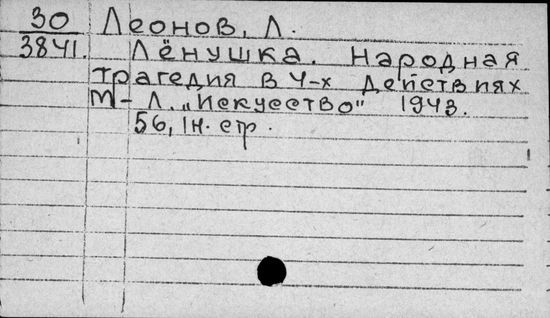 30 Леонов, Л.
3841. Лёнушка. Народная
трагедия в 4-х действиях
М-Л. „Искусство" 1943.
56, 1н. стр.